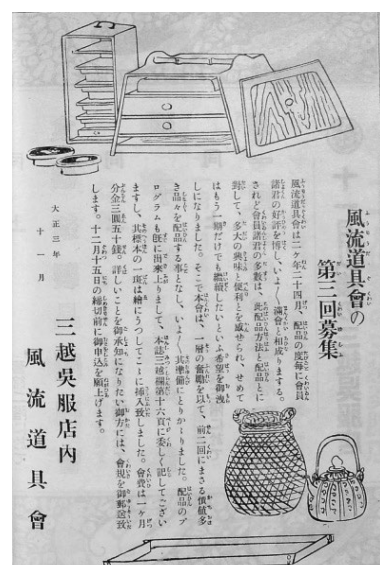 風流道具會の
第三回募集
風流道具會は二ケ年二十四月、配品の度毎に會員
諸君の好評を博し、いよ〱滿會と相成りまする。
されど會員諸君の多數は、此配品方法と配品とに
對して、多大の興味と便利とを感ぜられ、せめて
はもう一期だけでも繼續したいといふ希望を御洩
しになりました。そこで本會は、一層の奮勵を以て、前二回にまさる價値多
き品々を配品する事となし、いよ〱其準備にとりかゝりました。配品のプ
ログラムも既に出來上りまして、本誌三越欄第十六頁に委しく記してござい
ますし、其標本の一斑は繪にうつしてこゝに挿入致しました。會費は一ケ月
分金三圓五十錢。詳しいことを御承知になりたい御方には、會規を御郵送致
します。十一月十五日の締切前に御申込を願上げます。
大正三年
十一月
三越吳服店內
風流道具會